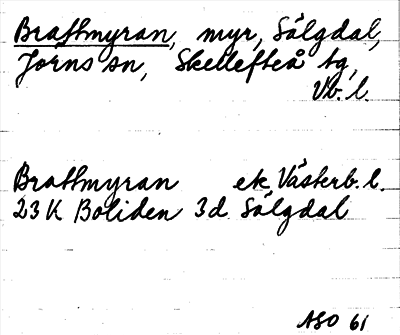 Brattmyran, myr, Sälgdal,
Jörns sn, Skellefteå tg,
Vb. l.
Brattmyran ek. Västerb. l.
23 K Boliden 3d Sälgdal
ASO 61